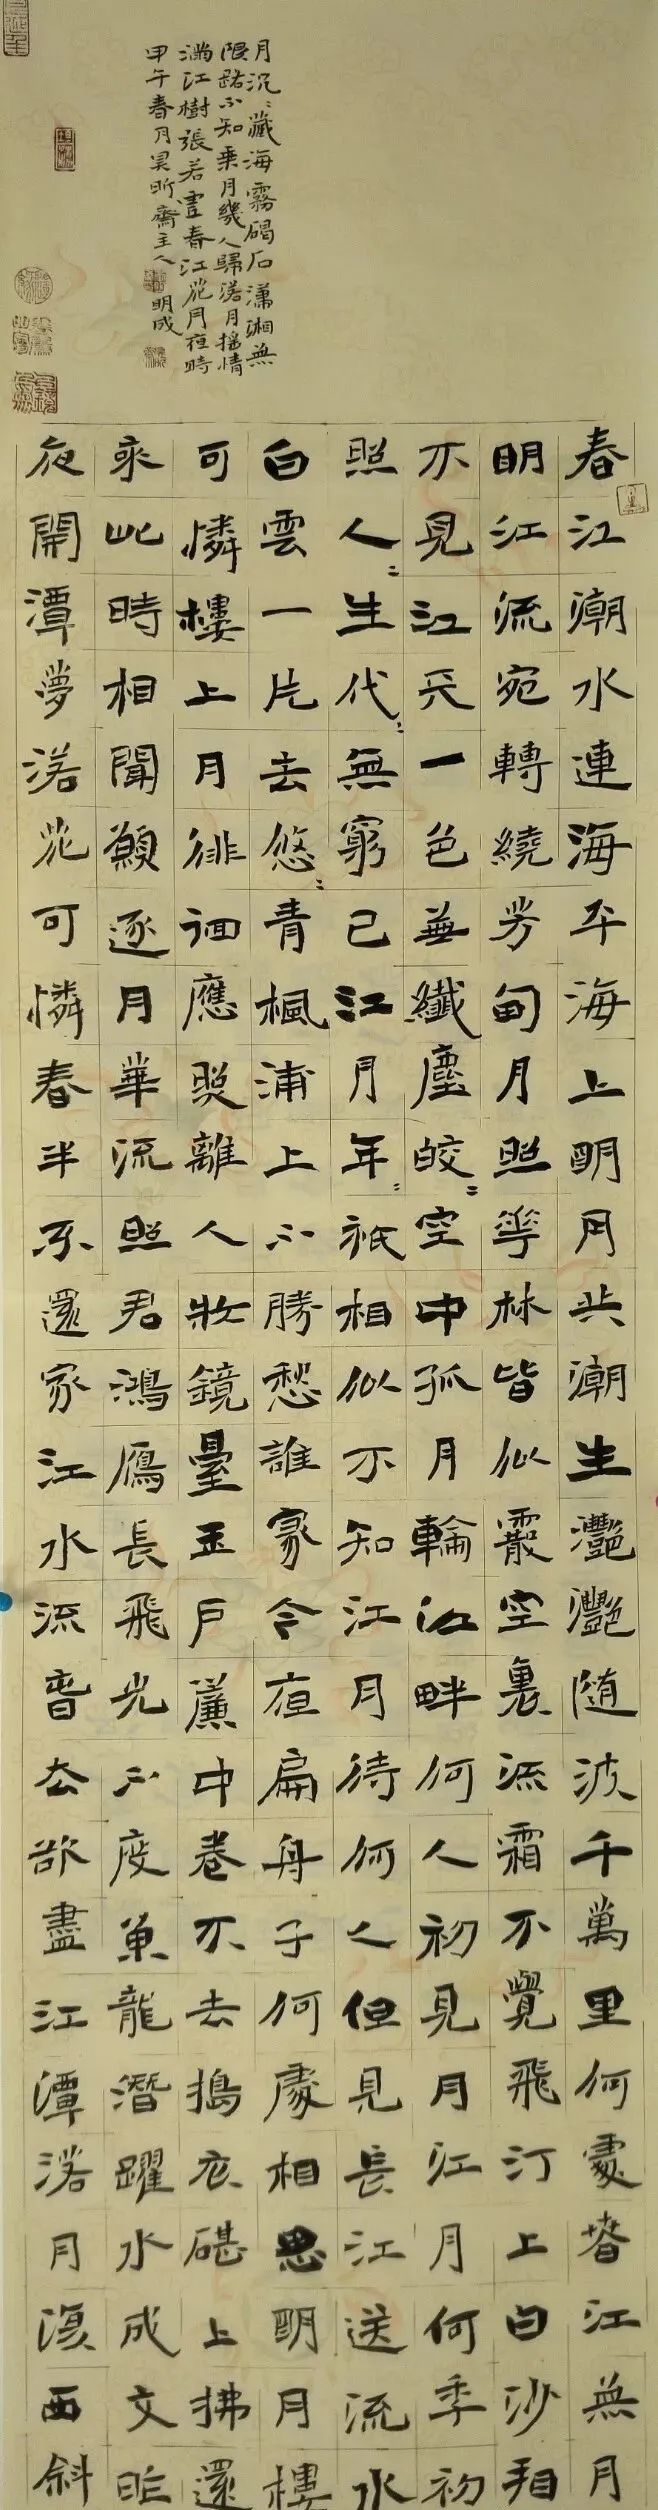 春江潮水連海平海上明月共潮生灩灩随波千萬里何處春江無月
明江流宛轉繞芳甸月照華林皆似霰空裏流霜不覺飛汀上白沙看
不見江天一色無纖塵皎〻空中孤月輪江畔何人初見月江月何年初
照人〻生代〻無窮已江月年〻祇相似不知江月待何人但見長江送流水
白雲一片去悠〻青楓浦上不勝愁誰家今夜扁舟子何處相思明月樓
可憐樓上月徘徊應照離人妝鏡臺玉戶簾中卷不去搗衣砧上拂還
來此時相聞願逐月華流照君鴻雁長飛光不度魚龍潛躍水成文昨
夜閒潭夢落花可憐春半不還家江水流春去欲盡江潭落月復西斜
月沉〻藏海霧碣石瀟湘無
限路不知乘月幾人歸落月搖情
滿江樹張若虛春江花月夜時
甲午春月昊昕齋主人明成